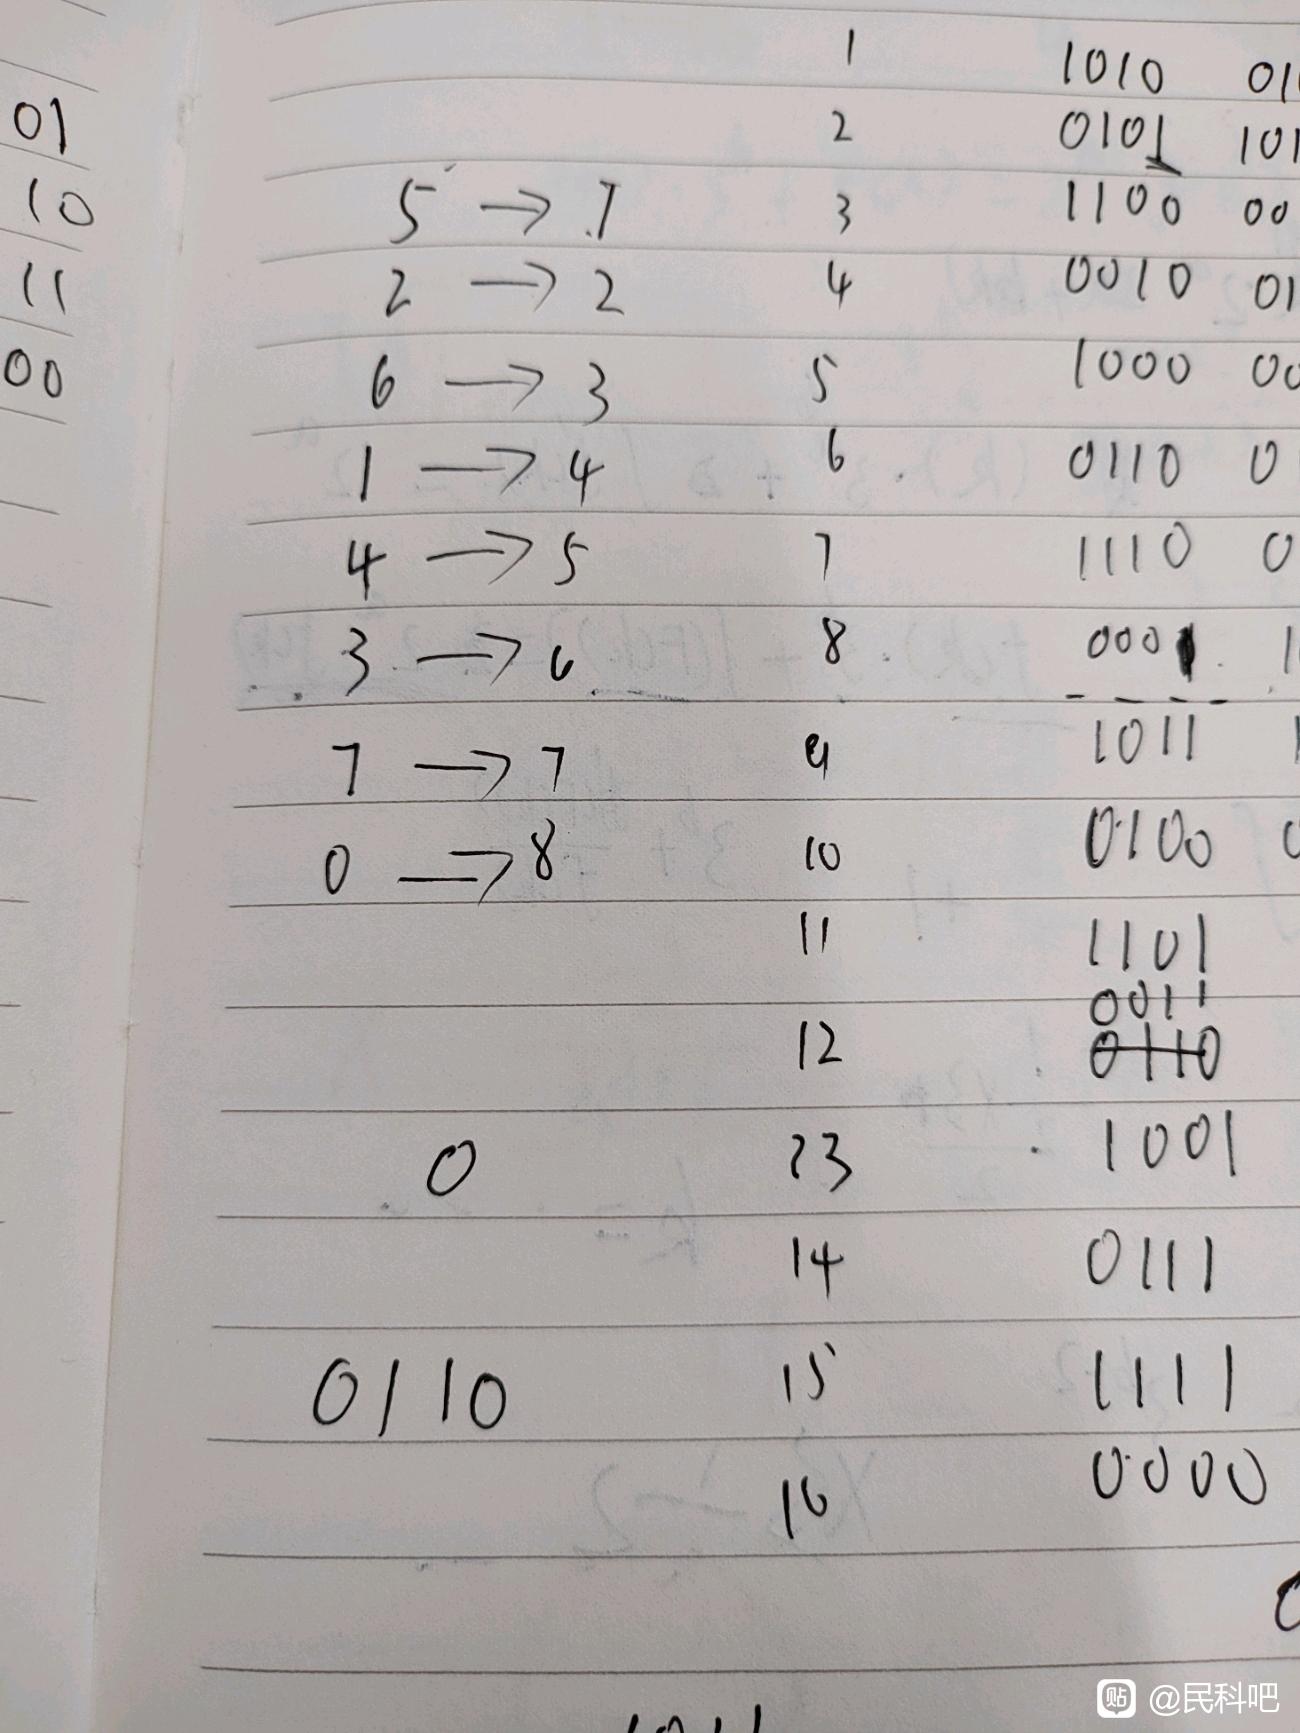 1 1010 01
01 2 0101 101
10 5 → 7 3 1100 00
11 2 → 2 4 0010 01
00 6 → 3 5 1000 00
1 → 4 6 0110 0
4 → 5 7 1110 0
3 → 6 8 0001 1
7 → 7 9 1011 1
0 → 8 10 0100 0
11 1101
0011
12 0110
0 13 1001
14 0111
0110 15 1111
16 0000
0
1011
贴 @民科吧